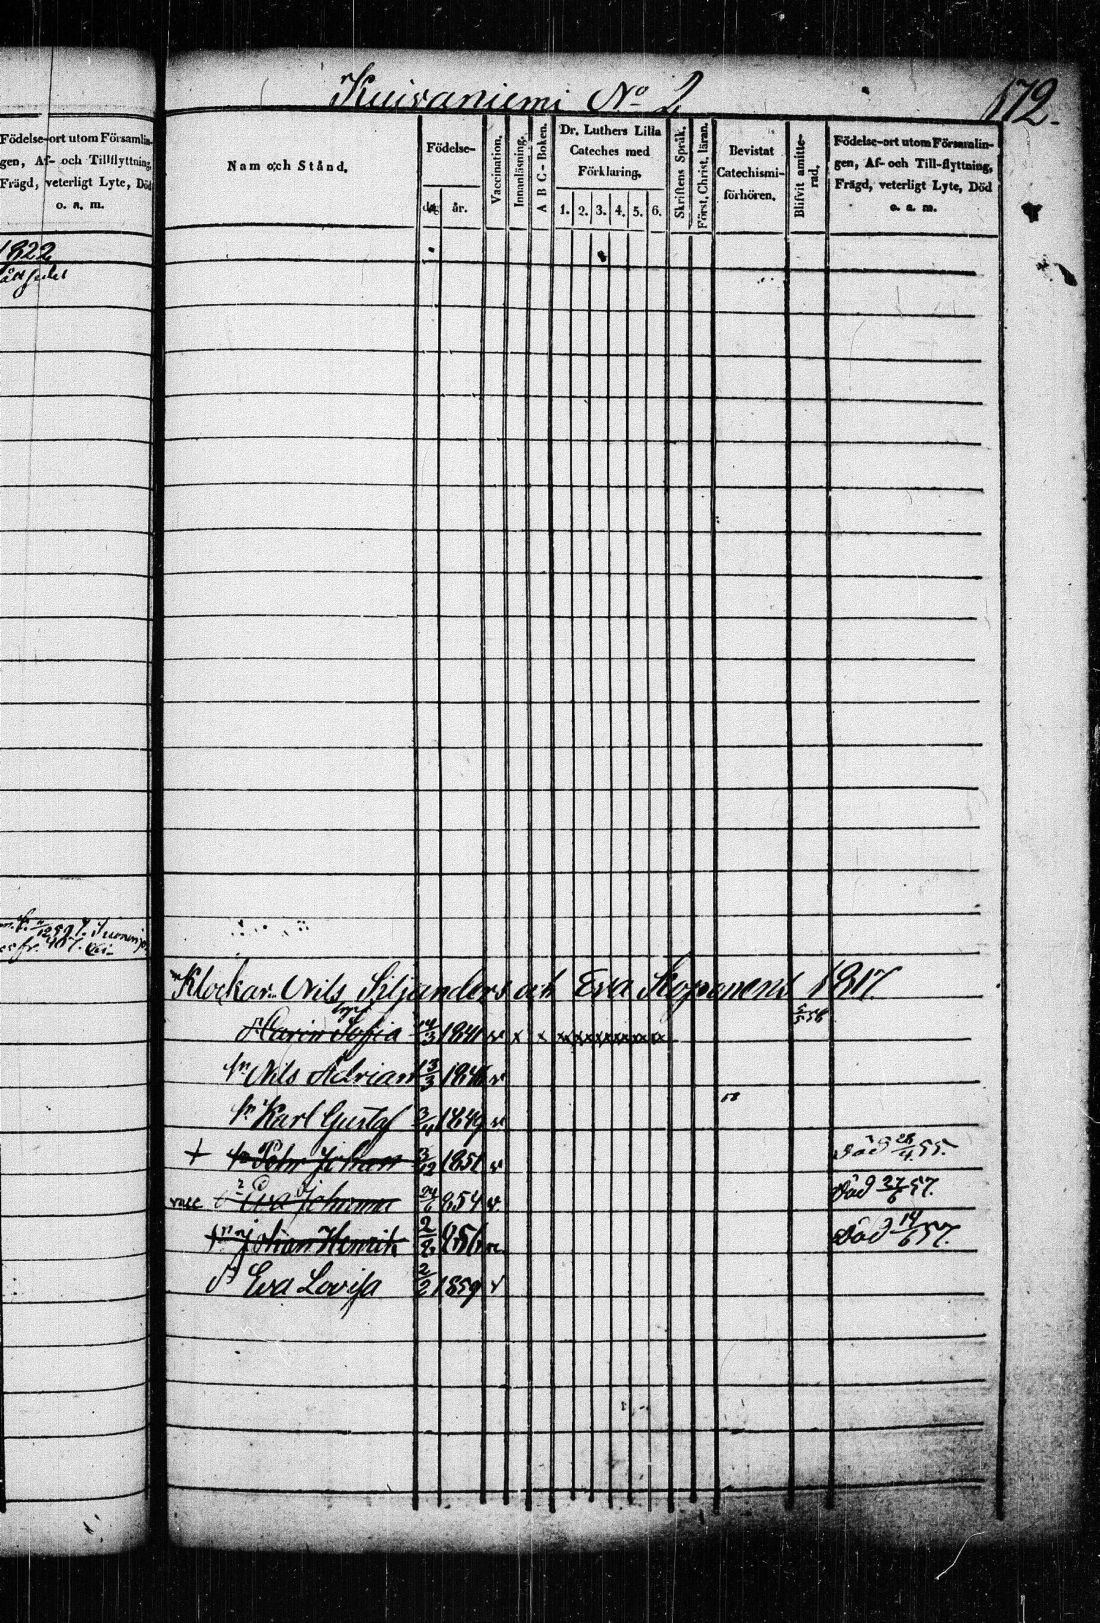 Kuivaniemi No 2
172.
Födelse-ort utom Församlin-
gen, Af- och Tillflyttning,
Frägd, veterligt Lyte, Död
o. a. m.
1822
Nam och Stånd.
Födelse-
dag
år.
Vaccination.
Innanläsning.
A B C - Boken.
Dr. Luthers Lilla
Cateches med
Förklaring.
1. 2. 3. 4. 5. 6.
Skriftens Språk.
Först. Christ. läran.
Bevistat
Catechismi-
förhören.
Blifvit amitte-
rad.
Födelse-ort utom Församlin-
gen, Af- och Till-flyttning,
Frägd, veterligt Lyte, Död
o. a. m.
Klockar. Nils Siljanders och Eva Koponens 1817.
Sofia 14/3 1841 v x x x x x x x x x x
Nils Adrian 13/3 1846 v
Karl Gustaf 3/4 1849 v
+ Pehr Johan 3/12 1851 v Död 28/4 55.
vacc Eva Johanna 24/6 854 v. Död 27/6 57.
Johan Henrik 2/8 856 Död 14/6 57.
Eva Lovisa 2/2 1859 v